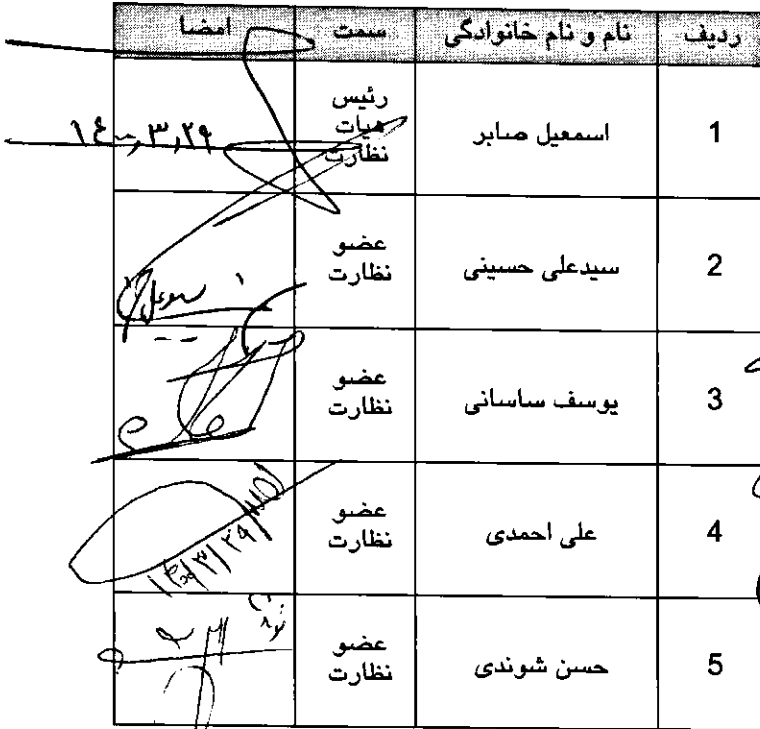 ردیف نام و نام خانوادگی سمت امضا
1 اسمعیل صابر رئیس هیات نظارت ۱٤۰۰,۳,۲۹
2 سیدعلی حسینی عضو نظارت
3 یوسف ساسانی عضو نظارت
4 علی احمدی عضو نظارت ۱۴۰۰/۳/۲۹
5 حسن شوندی عضو نظارت